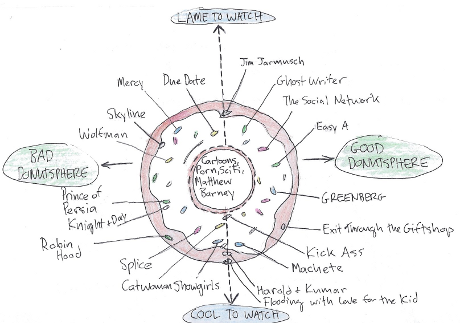 LAME TO WATCH
Jim Jarmusch
Mercy
Due Date
Ghost Writer
The Social Network
Skyline
Wolfman
Easy A
BAD
DONUTSPHERE
Cartoons,
Porn, Sci Fi,
Matthew
Barney
GOOD
DONUTSPHERE
Prince of
Persia
Knight + Day
GREENBERG
Robin
Hood
Exit Through the Giftshop
Kick Ass
Splice
Machete
Catwoman Showgirls
Harold + Kumar
Flooding with Love for the Kid
COOL TO WATCH